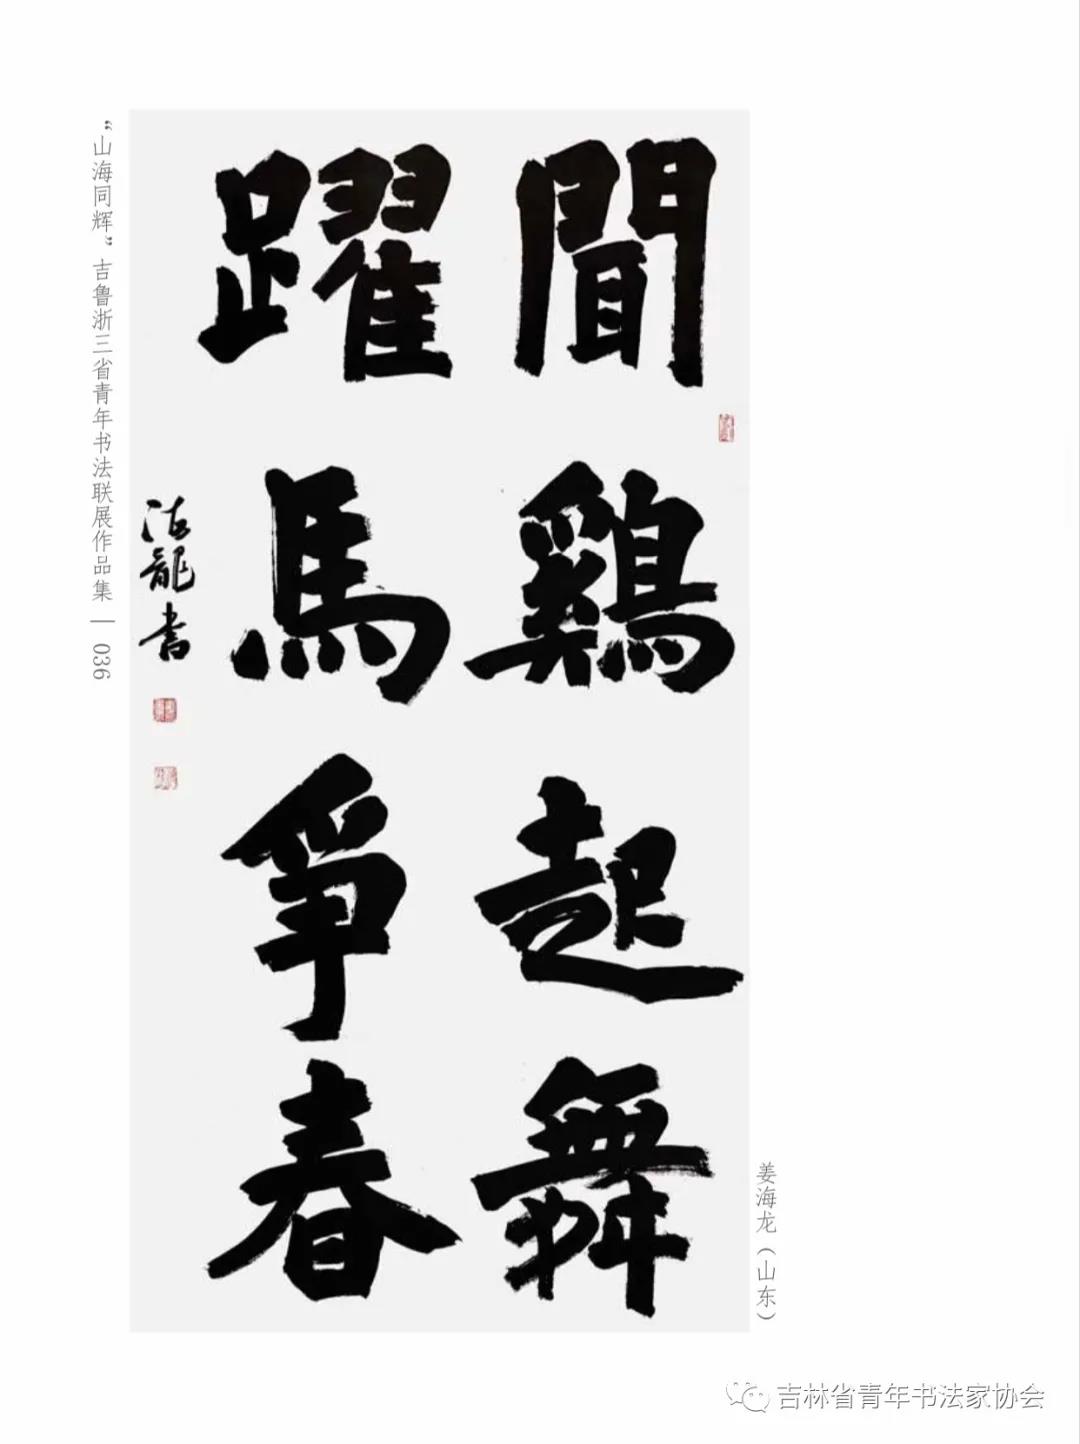 “山海同辉”吉鲁浙三省青年书法联展作品集 | 036
聞鷄起舞
躍馬爭春
海龍书
姜海龙（山东）
吉林省青年书法家协会